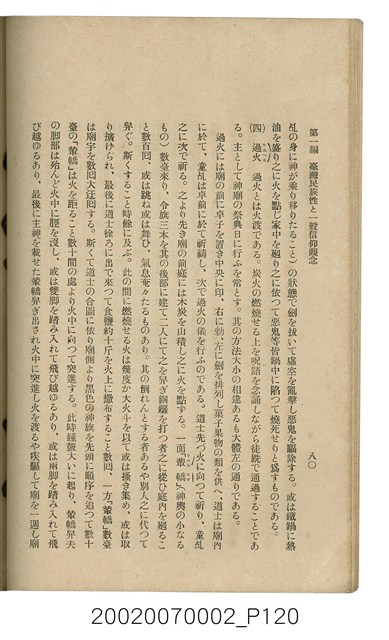 第一編　臺灣民族性と一般信仰觀念
八〇
乩の身に神が乘り移りたること）の狀態で劍を拔いて虛空を亂擊し惡鬼を驅除する。或は鐵鍋に熱
油を盛り之に火を點じ家中を廻り之に依つて惡鬼等皆鍋中に陷つて燒死せりと爲すものである。
(四)　過火　過火とは火渡である。炭火の燃燒せる上を呪語を念誦しながら徒跣で通過することであ
る。主として神廟の祭典日に行ふを常とす。其の方法大小の相違あるも大體左の通りである。
過火には廟の前に卓子を置き中央に印、右に勅、左に劍を排列し菓子果物の類を供へ、道士は廟內
に於て、童乩は卓前に於て祈禱し、次で過火の儀を行ふのである。道士先づ火に向つて祈り、童乩
之に次で祈る。之より先き廟の前庭には木炭を山積し之に火を點ずる。一面輦轎（神輿の小なる
もの）數臺來り、令旗三本を其の後部に建て二人にて之を舁ぎ銅鑼を打つ者之に從ひ庭內を廻るこ
と數百回、或は跳ね或は舞ひ、氣息奄々たるものあり。其の倒れんとする者あるや別人之に代つて
舁ぐ。斯くすること時餘に及ぶ。此の間に燃燒せる火は幾度か大火斗を以て或は搔き集め、或は取
り擴げられ、最後に道士徐ろに出で來つて食鹽約十斤を火上に撒布すること數回、一方「輦轎」數臺
は廟宇を數回大迂回する。斯くて道士の合圖に依り廟側より黑色の神旗を先頭に順序を追つて數十
臺の「輦轎」は火を距ること數十間の處より火中に向つて突進する。此時鐘鼓大いに起り、輦轎舁夫
の脚部は殆んど火中に腰を沒し、或は雙脚を踏み入れて飛び越ゆるあり、或は兩脚を踏み入れて飛
び越ゆるあり、最後に主神を載せた輦轎舁ぎ出され火中に突進し火を渡るや疾驅して廟を一週し廟
20020070002_P120